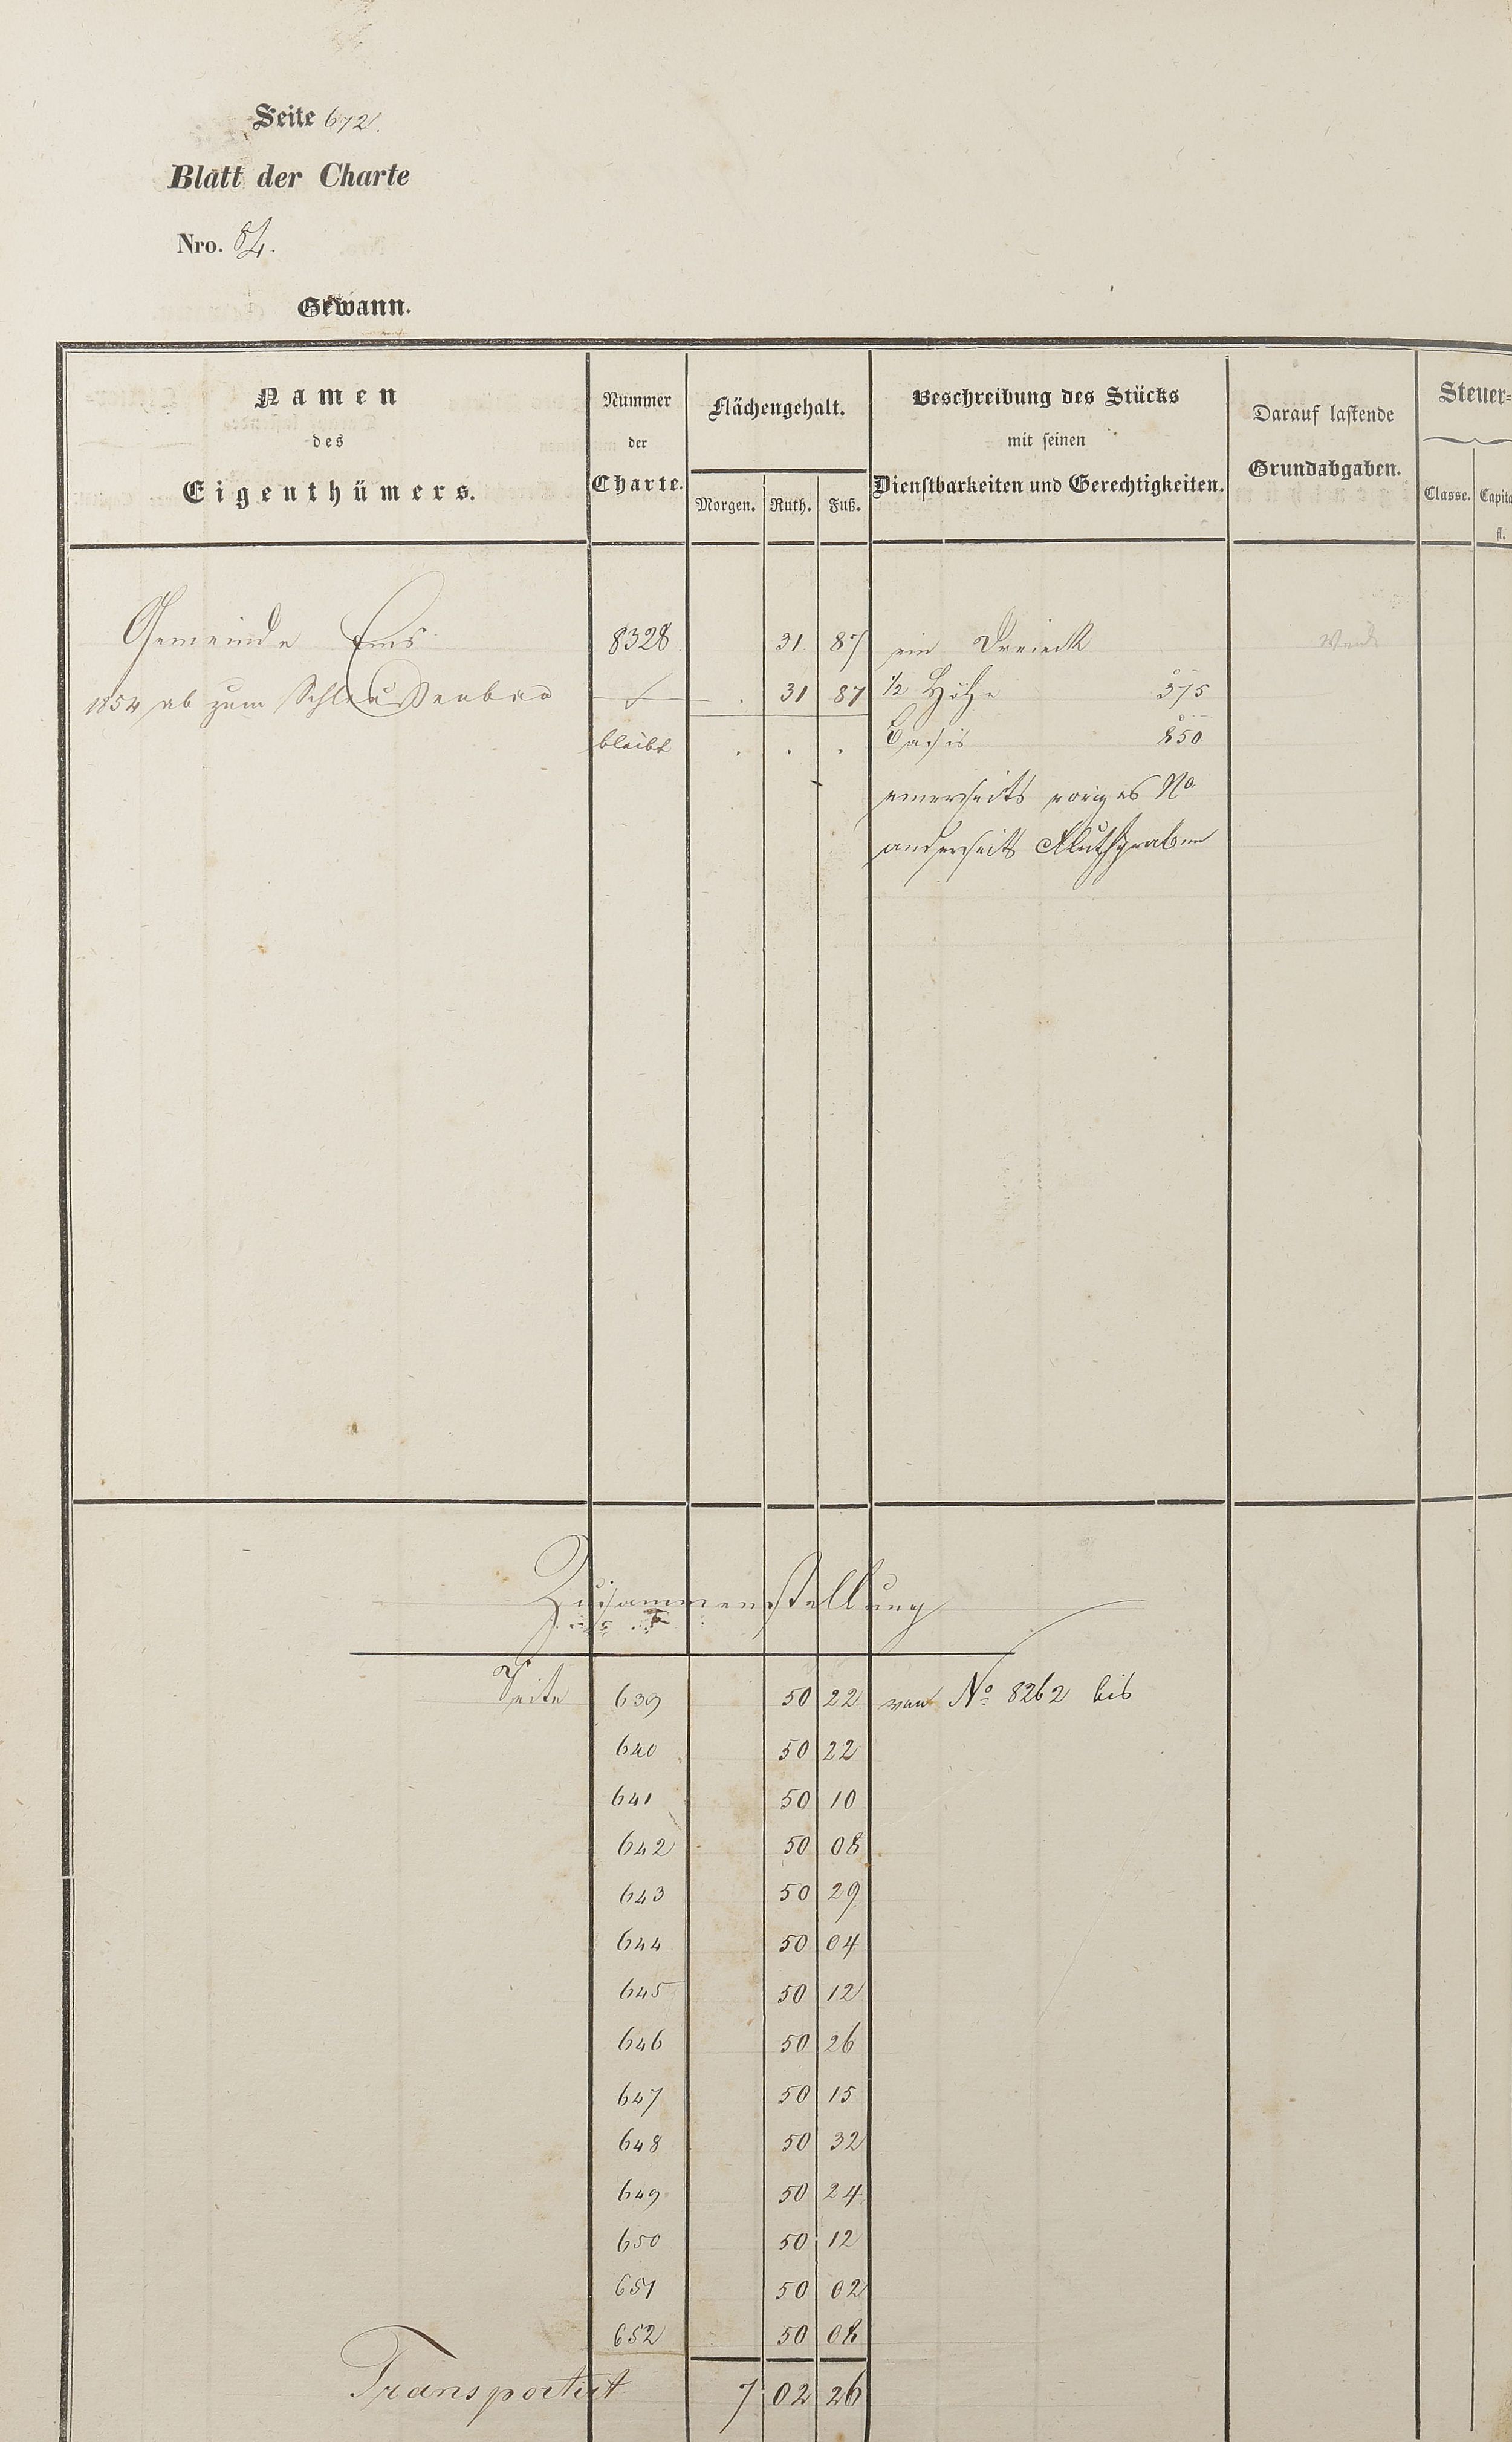 Seite 672.
Blatt der Charte
Nro. 84.
Gewann.
Namen des Eigenthümers.
Nummer der Charte.
Flächengehalt.
Morgen. Ruth. Fuß.
Beschreibung des Stücks mit seinen Dienstbarkeiten und Gerechtigkeiten.
Darauf lastende Grundabgaben.
Steuer=
Classe. Capita
fl.
Gemeinde Ems 8328 31 87 ein Dreieck
1854 ab zum Schleußenbau 31 87 1/2 Höhe 375
bleibt . . . Basis 850
einerseits voriges No
anderseits Fluthgraben
Zusammenstellung
Seite 639 50 22 von No 8262 bis
640 50 22
641 50 10
642 50 08
643 50 29
644 50 04
645 50 12
646 50 26
647 50 15
648 50 32
649 50 24
650 50 12
651 50 02
652 50 08
Transportirt 7 02 26